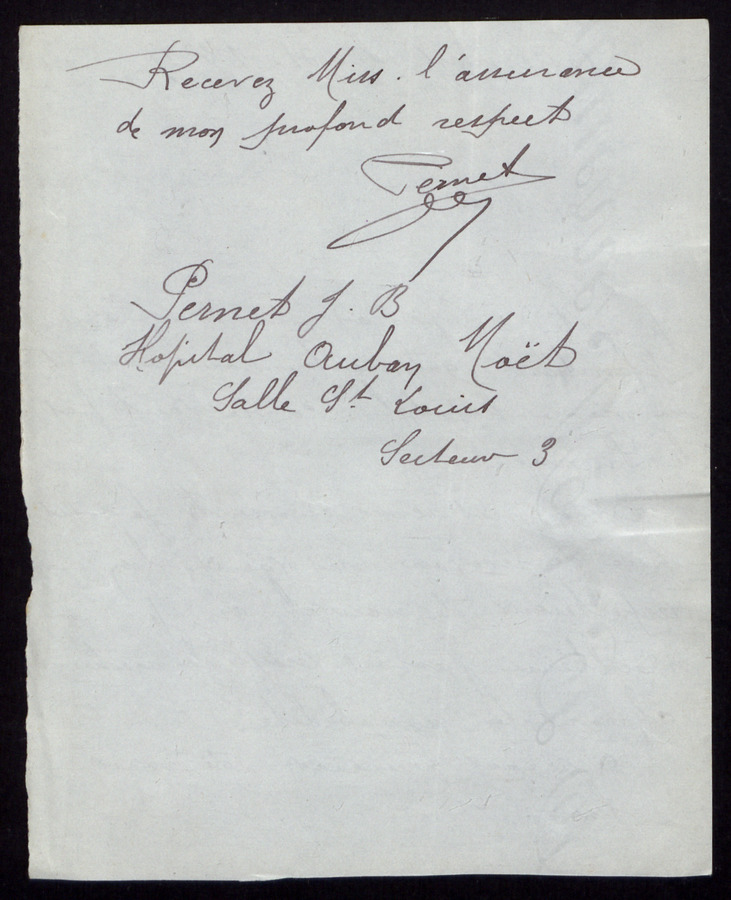 Recevez Miss. l'assurance
de mon profond respect
Pernet
Pernet J. B
Hopital Auban Moët
Salle St Louis
Secteur 3